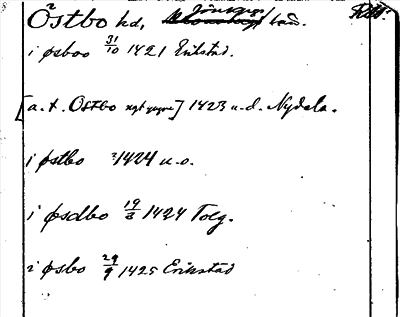 Östbo hd, Jönköpings län.
i øsboo 31/10 1421 Erikstad.
[a. t. Östbo] 1423 u. d. Nydala.
i østbo 1424 u. o.
i øsdbo 19/3 1424 Toeg.
i øsbo 29/9 1425 Erikstad